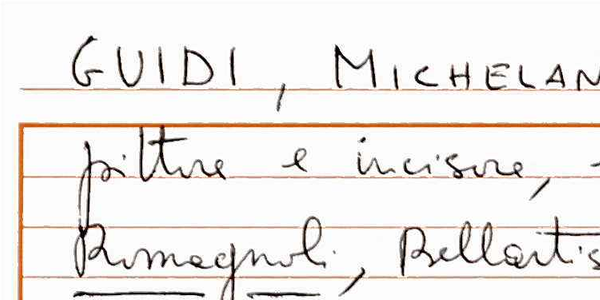 GUIDI, MICHELAN
pittore e incisore,
Romagnoli, Bellartis